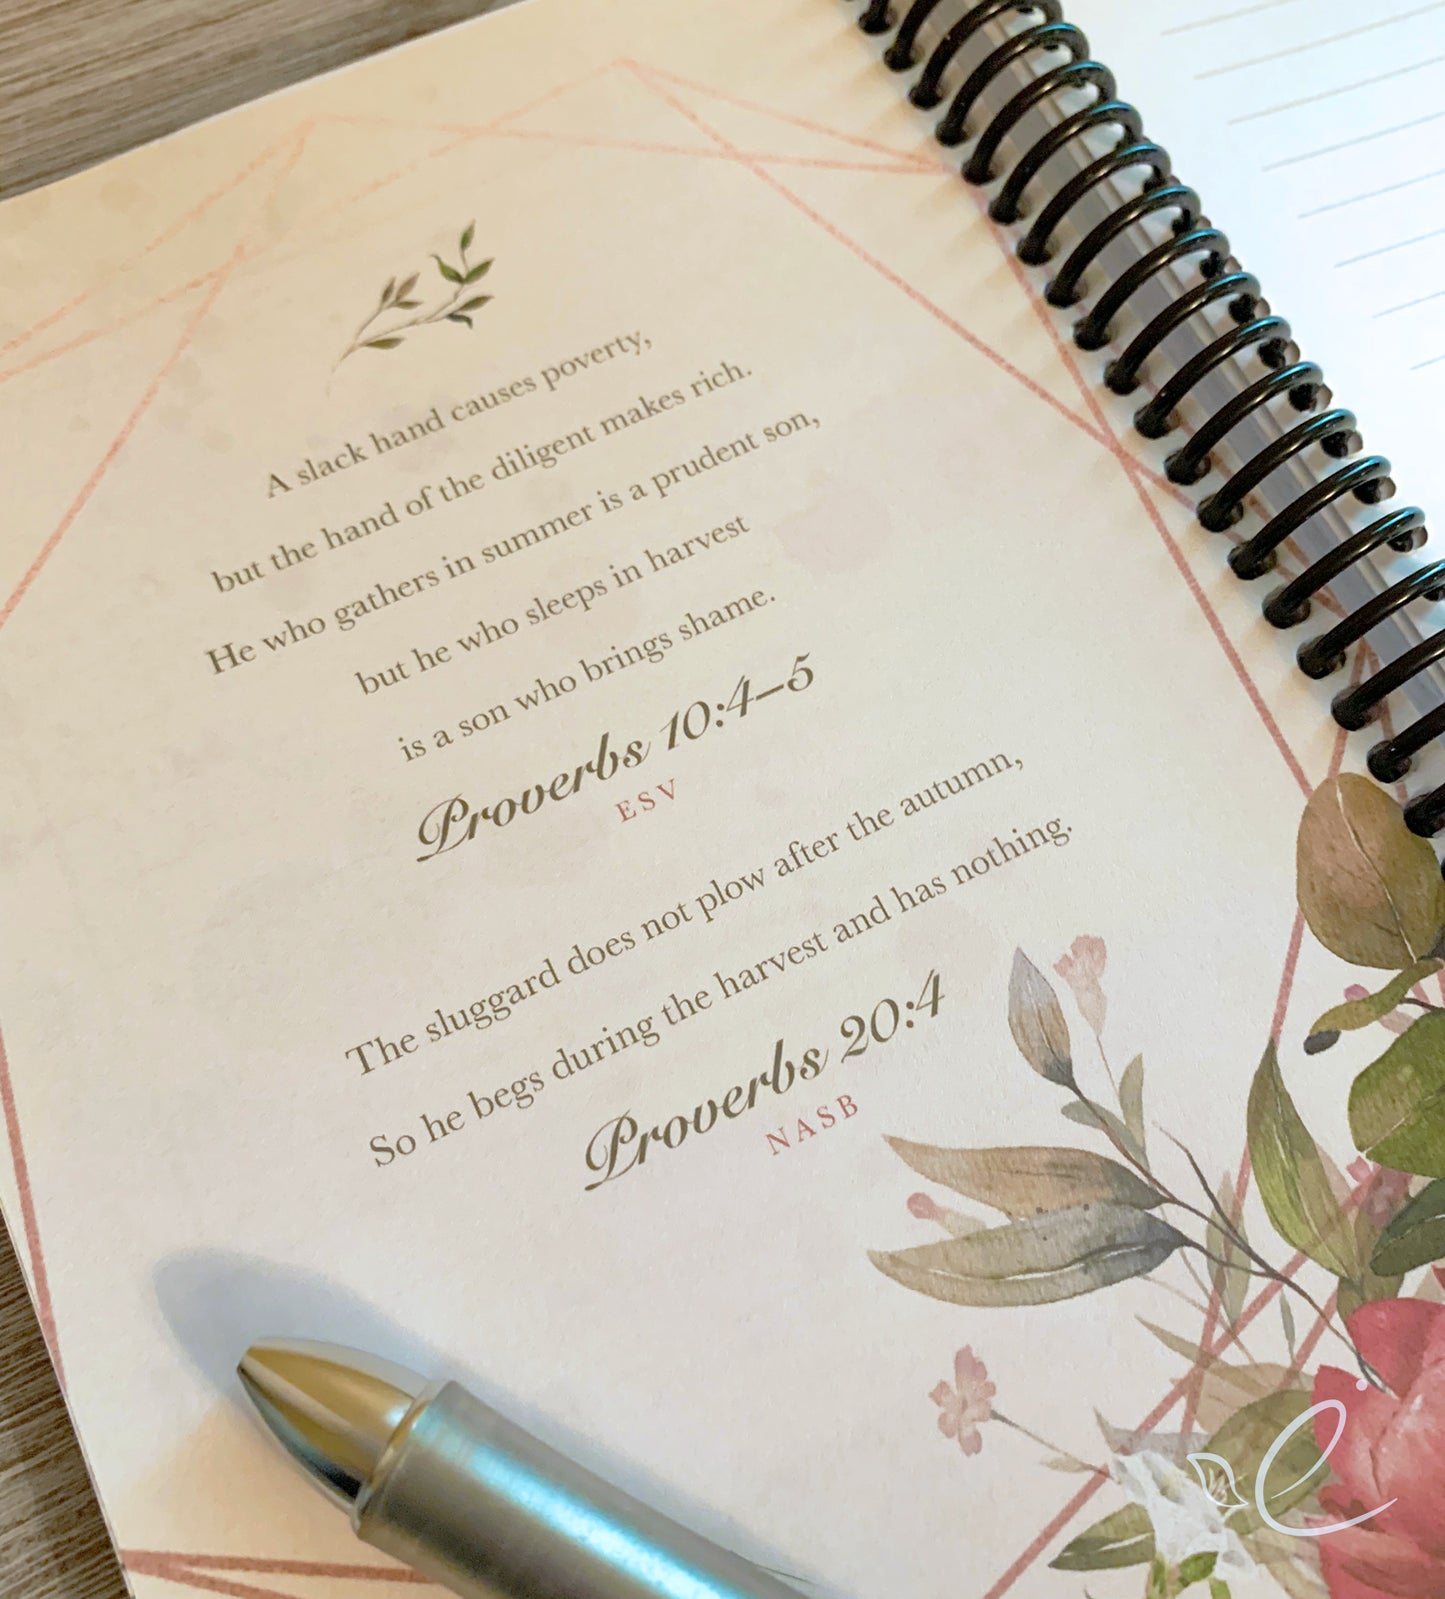 A slack hand causes poverty,
but the hand of the diligent makes rich.
He who gathers in summer is a prudent son,
but he who sleeps in harvest
is a son who brings shame.
Proverbs 10:4–5
ESV
The sluggard does not plow after the autumn,
So he begs during the harvest and has nothing.
Proverbs 20:4
NASB